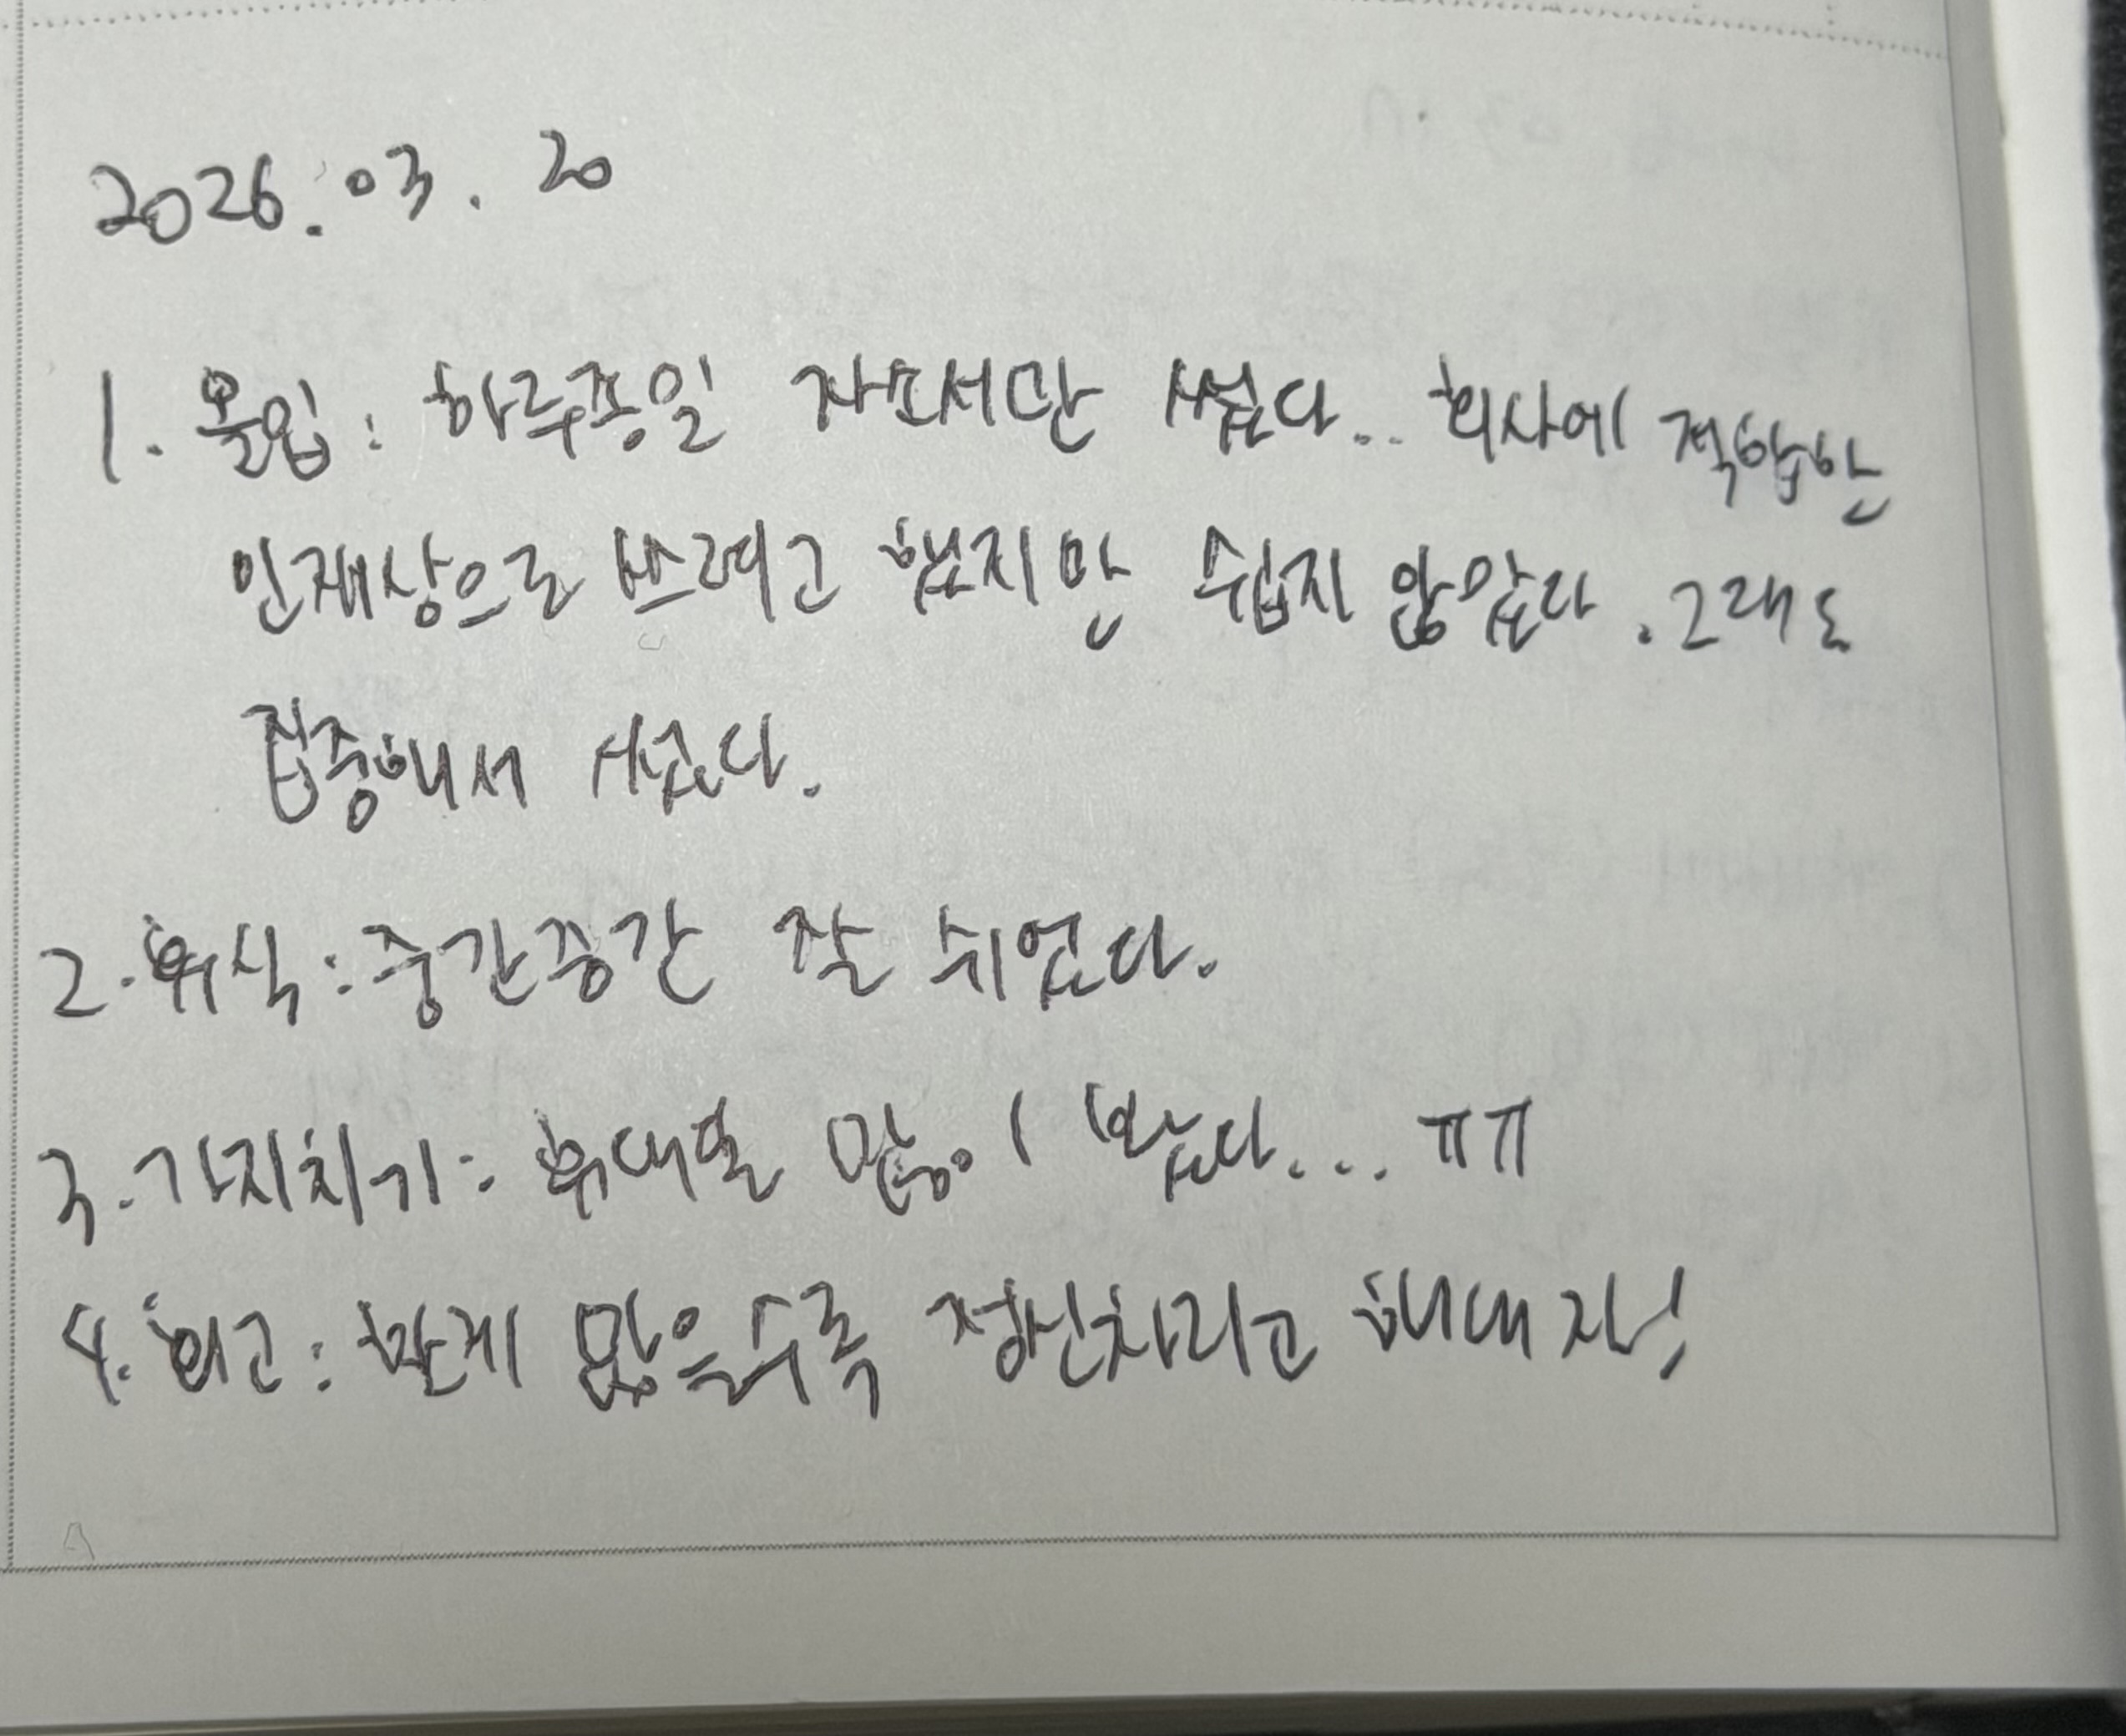 2026. 03. 20
1. 몰입 : 하루종일 자소서만 썼다.. 회사에 적합한
인재상으로 쓰려고 했지만 쉽지 않았다. 그래도
집중해서 썼다.
2. 휴식 : 중간중간 잘 쉬었다.
3. 가지치기 : 휴대폰 많이 봤다... ㅠㅠ
4. 회고 : 할게 많을수록 정신차리고 해내자!